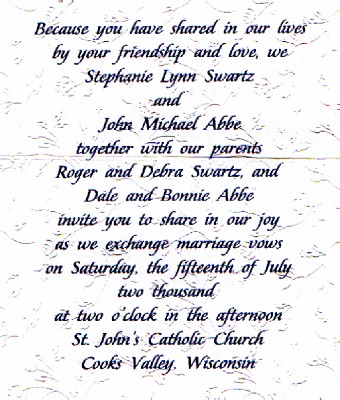 Because you have shared in our lives
by your friendship and love, we
Stephanie Lynn Swartz
and
John Michael Abbe
together with our parents
Roger and Debra Swartz, and
Dale and Bonnie Abbe
invite you to share in our joy
as we exchange marriage vows
on Saturday, the fifteenth of July
two thousand
at two o'clock in the afternoon
St. John's Catholic Church
Cooks Valley, Wisconsin